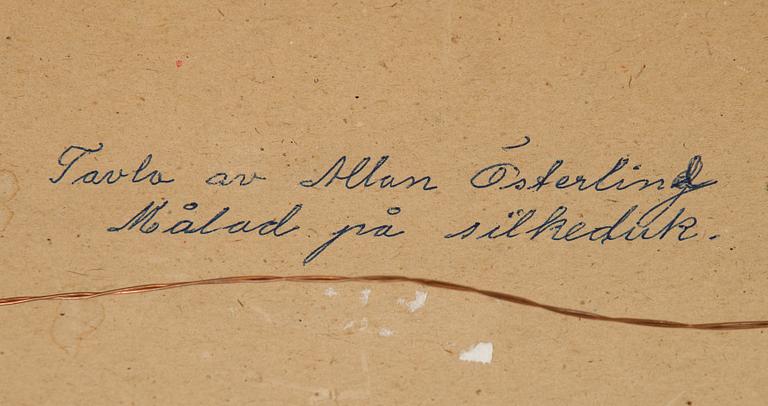 Tavla av Allan Österlind
Målad på silkeduk.